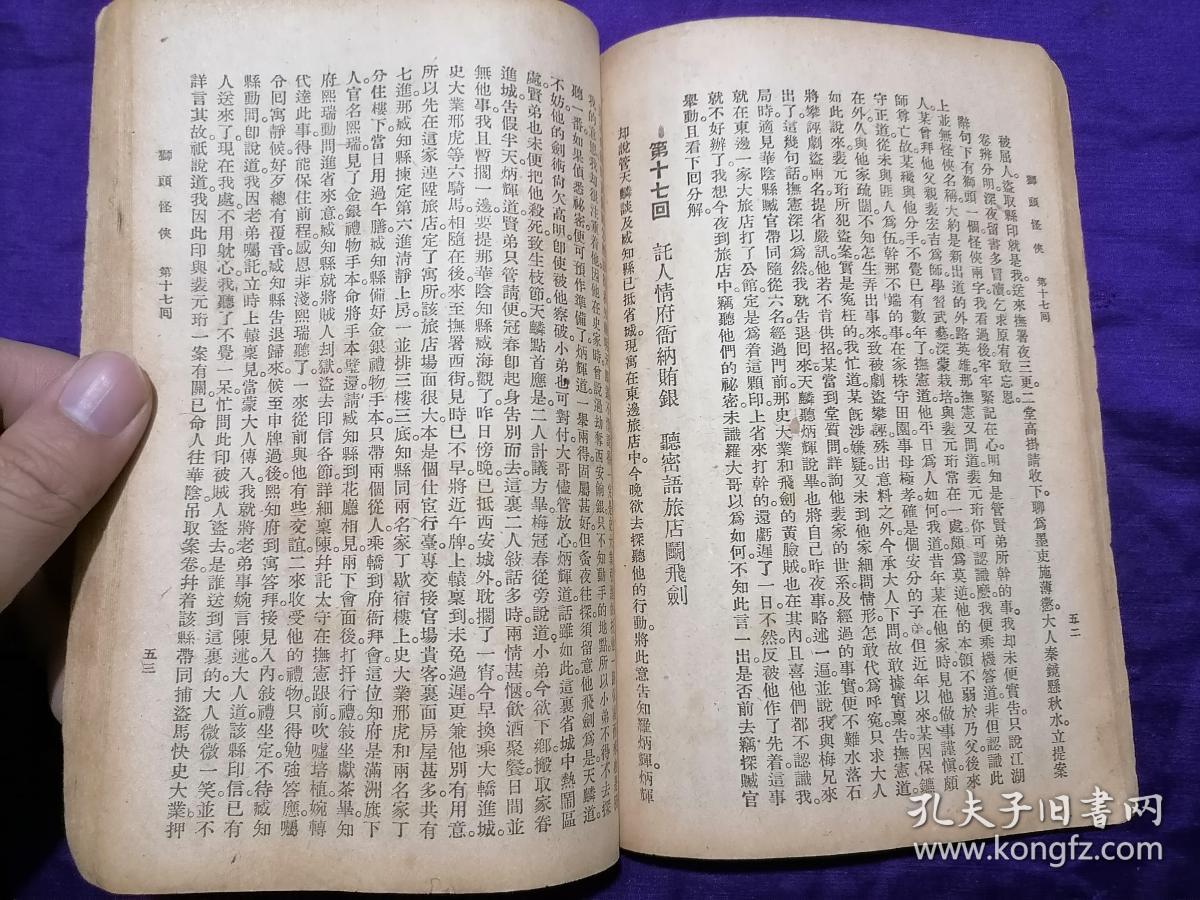 獅頭怪俠　第十七回　五二
被屬人盜取縣印就是我。送來撫署夜三更。二堂高掛請收下。聊爲墨吏施薄懲。大人秦鏡縣秋水。立提案
卷辨分明。深夜留書多冒瀆。乞求原有敢忘恩。
辭句下有獅頭一個。怪俠兩字。我看過後牢牢緊記在心。明知是管賢弟所幹的事。我却未便實告。只說江湖
上並無怪俠名稱。大約是新出道的外路英雄。那撫憲又問道。裴元珩你可認識麽。我便乘機答道。非但認識此
人。某曾拜他父親裴宏吉爲師。學習武藝。深蒙栽培。與裴元珩常在一處。頗爲莫逆。他的本領不弱於乃父。後來
師尊亡故。某礙與他分手。不覺已有數年了。撫憲道。他平日爲人如何。我道。昔年某在他家時。見他做事謹愼。頗
守正道。從未與匪人爲伍。幹那不端的事。在家株守田園。事母極孝。確是個安分的子。但近年以來。某因保鑣
在外。久與他家疏闊。不知怎生弄出事來。致被劇盜攀誣。殊出意料之外。今承大人下問。故敢據實稟告。撫憲道。
如此說來。裴元珩所犯盜案。實是寃枉的。我忙道。某旣涉嫌疑。又未到他家細問情形。怎敢代爲呼寃。只求大人
將攀誣劇盜兩名。提省嚴訊。他若不肯供招。某當到堂質問。詳詢他裴家的世系及經過的事實。便不難水落石
出了。這幾句話撫憲深以爲然。我就告退回來。天麟聽炳輝說畢。也將自己昨夜事略述一遍。並說我與梅兄來
局時。適見華陰縣贓官帶同隨從六名經過門前。那史大業和飛劍的黃臉賊也在其內。且喜他們都不認識我。
就在東邊一家大旅店打了公館。定是爲着這顆印上省來打幹的。還虧遲了一日。不然反被他作了先着。這事
就不好辦了。我想今夜到旅店中。竊聽他們的祕密。未識羅大哥以爲如何。不知此言一出。是否前去竊探贓官
舉動。且看下回分解。
第十七回　託人情府衙納賄銀　聽密語旅店鬭飛劍
却說管天麟談及臧知縣已抵省城。現寓在東邊旅店中。今晚欲去探聽他的行動。將此意告知羅炳輝。炳輝
聽一番。如果偵悉祕密。便可預作準備了。炳輝道。一舉兩得。固屬甚好。但蚤夜往探。須留意他飛劍爲是。天麟道。
不妨。他的劍術尙欠高明。卽使被他察破。小弟也可對付。大哥儘管放心。炳輝道。話雖如此。這裏省城中熱鬧區
處。賢弟也未便把他殺死。致生枝節。天麟點首應是。二人計議方畢。梅冠春從旁說道。小弟今欲下鄉搬取家眷
進城。告假半天。炳輝道。賢弟只管請便。冠春卽起身告別而去。這裏二人敍話多時。兩情甚愜。飮酒聚餐。日間並
無他事。我且暫擱一邊。要提那華陰知縣臧海觀了。昨日傍晚已抵西安城外。耽擱了一宵。今早換乘大轎進城。
史大業邢虎等六騎馬相隨在後。來至撫署西街見時已不早。將近午牌。上轅稟到。未免過遲。更兼他別有用意。
所以先在這家連陞旅店定了寓所。該旅店場面很大。本是個仕臣行臺。專交接官場貴客。裏面房屋甚多。共有
七進。那臧知縣揀定第六進清靜上房。一並排三樓三底。知縣同兩名家丁歇宿樓上。史大業邢虎和兩名家丁
分住樓下。當日用過午膳。臧知縣備好金銀禮物手本。只帶兩個從人。乘轎到府衙拜會。這位知府是滿洲旗下
人。官名熙瑞。見了金銀禮物手本。命將手本璧還。請臧知縣到花廳相見。兩下會面後。打扞行禮。敍坐獻茶畢。知
府熙瑞動問進省來意。臧知縣就將賊人刦獄盜去印信各節詳細稟陳。幷託太守在撫憲跟前吹噓培植。婉轉
代達此事。得能保住前程。感恩非淺。熙瑞聽了。一來從前與他有些交誼。二來收受他的禮物。只得勉強答應。囑
令回寓靜候。好歹總有覆音。臧知縣告退歸來。候至申牌過後。熙知府到寓答拜。接見入內。敍禮坐定。不待臧知
縣動問。卽說道。我因老弟囑託。立時上轅稟見。當蒙大人傳入。我就將老弟事婉言陳述。大人道。該縣印信已有
人送來了。現在我處。不用躭心。我聽了不覺一呆。忙問此印被賊人盜去。是誰送到這裏的。大人微微一笑。並不
詳言其故。祇說道。我因此印與裴元珩一案有關。已命人往華陰吊取案卷。幷着該縣帶同捕盜馬快史大業。押
獅頭怪俠　第十七回　五三
孔夫子旧书网
www.kongfz.com